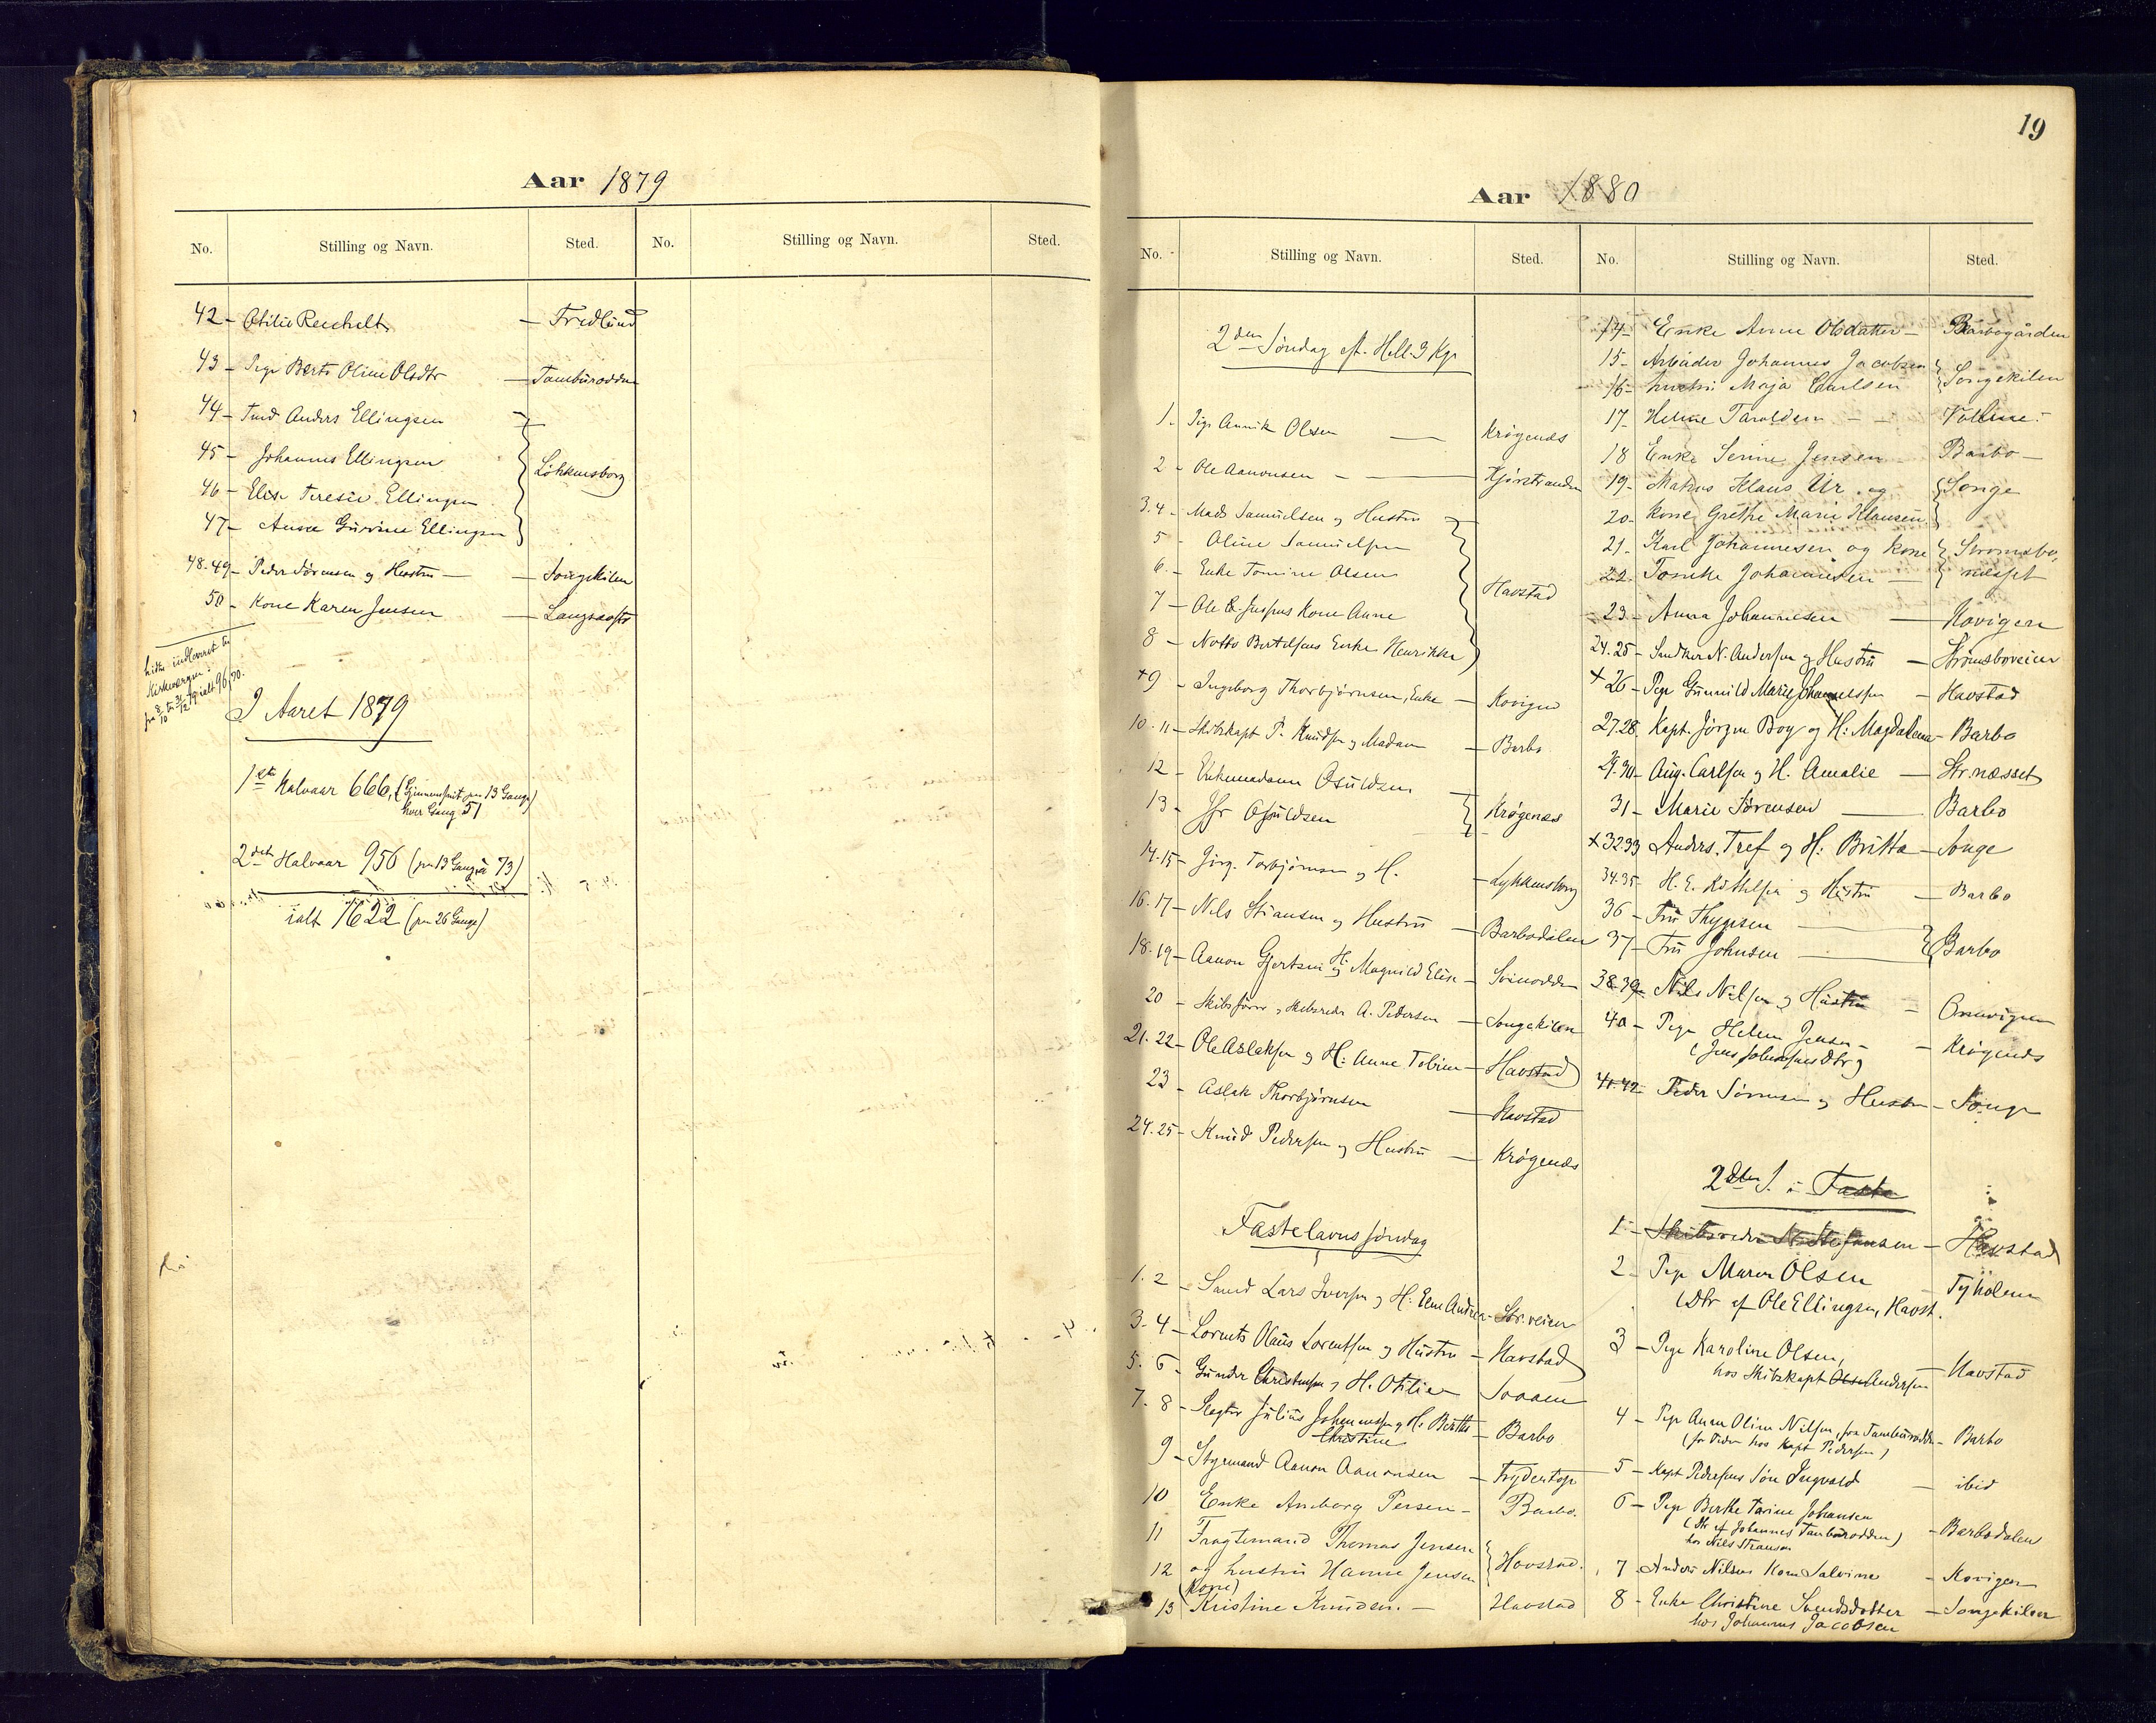 Aar 1879
No. Stilling og Navn. Sted. No. Stilling og Navn. Sted.
42 - Otilie Reichelt - Fredlund
43 - Pige Berte Oline Olsdtr - Tambürodden
44 - Anders Ellingsen
45 - Johannes Ellingsen
46 - Elise Teresie Ellingsen
Lökkensborg
47 - Anne Gurine Ellingsen
48.49 - Peder Sörensen og Hustru - Songekilen
50 - Kone Karen Jensen -
indleveret til
Kirkevergen
I Aaret 1879
1ste Halvaar 666, (Gjennemsnit pr 13 Gange)
hver Gang 51
2det Halvaar 956 (pr 13 Gang à 73)
ialt 1622 (pr 26 Gange)
19
Aar 1880
No. Stilling og Navn. Sted.
2den Söndag eft. Hell. 3 Kgr
1. Pige Annik Olsen - Krögenæs
2 - Ole Aanonsen - Kjörstranden
3.4 - Mads Samuelsen og Hustru
5 - Oline Samuelsen
6. - Enke Tomine Olsen
Havstad
7 - Ole Kone Anne
8 - Notto Bertelsens Enke Henrikke
+9 - Ingeborg Thorbjörnsen, Enke - Kovigen
10.11 - Skibskapt P. Knudsen og Madam - Barbo
12 - Enkemadam Osuldsen
13 - Jfr Osuldsen
Krögenæs
14.15 - Jörg. Torbjörnsen og H. - Lykkensborg
16.17 - Nils Stiansen og Hustru - Barbodalen
18.19 - Aanon Gjertsen og H. Magnild Elise - Svinodden
20 - Skibsförer, Skibsreder A. Pedersen - Songekilen
21.22 - Ole Aslaksen og H: Anne Tobine - Havstad
23 - Aslak Thorbjörnsen - Havstad
24.25 - Knud Pedersen og Hustru - Krögenæs
Fastelavns söndag
1.2 - Lars Iversen og H: Elen Andrea - Str. veien
3.4 - Lorents Olaus Lorentsen og Hustru - Havstad
5.6 - Gunder Christensen, H. Otilie - Soaaen
7.8 - Slagter Julius Johannessen og H. Berthe - Barbo
Christine
9 - Styrmand Aanon Aanonsen - Frydentop
10 Enke Anborg Persen - Barbo.
11 Fragtemand Thomas Jensen
12 og hustru Hanne Jensen
Havstad.
(Kone)
13 Kristine Knudsen. - Havstad
No. Stilling og Navn. Sted.
14 - Enke Anne Olsdatter - Barbogården
15 - Arbeider Johannes Jacobsen
16 - hustru Maja Carlsen
Songekilen
17 - Helene Taraldsen - Vollene.
18 Enke Serine Jensen - Barbo -
19 - Matros Klaus Ur. og Songe
20 - kone Grethe Marie Klausen
21 - Karl Johannesen og kone Strömsbo,
22. Tomke Johannesen - næsset
23 - Anna Johannesen - Kovigen
24.25 - Snedker N. Andersen og Hustru - Strömsboveien
+ 26 - Pige Gunnild Marie - Havstad
27.28 Kapt. Jörgen Boy og H: Magdalena - Barbo
29.30 - Aug. Carlsen og H. Amalie - Str. næsset
31 - Marie Sörensen - Barbo
+ 32 33 Anders. Tref og H. Britta - Songe
34.35 - H. E. og Hustru - Barbo
36 - Fru Thygesen
37 - Fru Johnsen
Barbo
38.39 - Nils Nilsen og Hustru -
40 - Pige Helene Jensen - Krögenæs
(Jens Johnsens Dtr)
41.42 - Peder Sörensen og Hustru - Songe
2den S. i Faste
1 - Skibsreder N. Stefansen - Havstad
2 - Pige Maren Olsen Tyholmen
(Dtr af Ole Ellingsen, Havst.
3 - Pige Karoline Olsen, - Havstad
hos Skibskapt Olsen Andersen
4 - Pige Anne Oline Nilsen, fra Tambürodden - Barbo
(for Tiden hos Kapt Pedersen)
5 - Kapt Pedersens Sön Ingvald - ibid
6 - Pige Berthe Tarine Johansen - Barbodalen
(Dtr af Johannes Tambürodden)
hos Nils Stiansen
7 - Anders Nilsens Kone Salvine - Kovigen
8 - Enke Christine Svendsdatter - Songekilen
hos Johannes Jacobsen